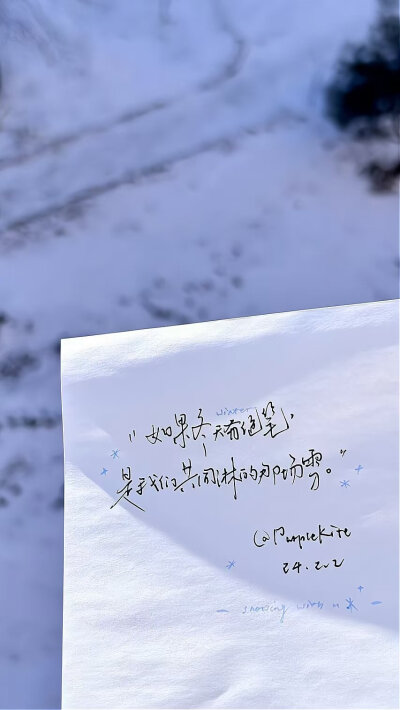 winter
"如果冬天有随笔,
是我们共同淋的那场雪。"
@PurpleKite
24.2.2
snowing with u